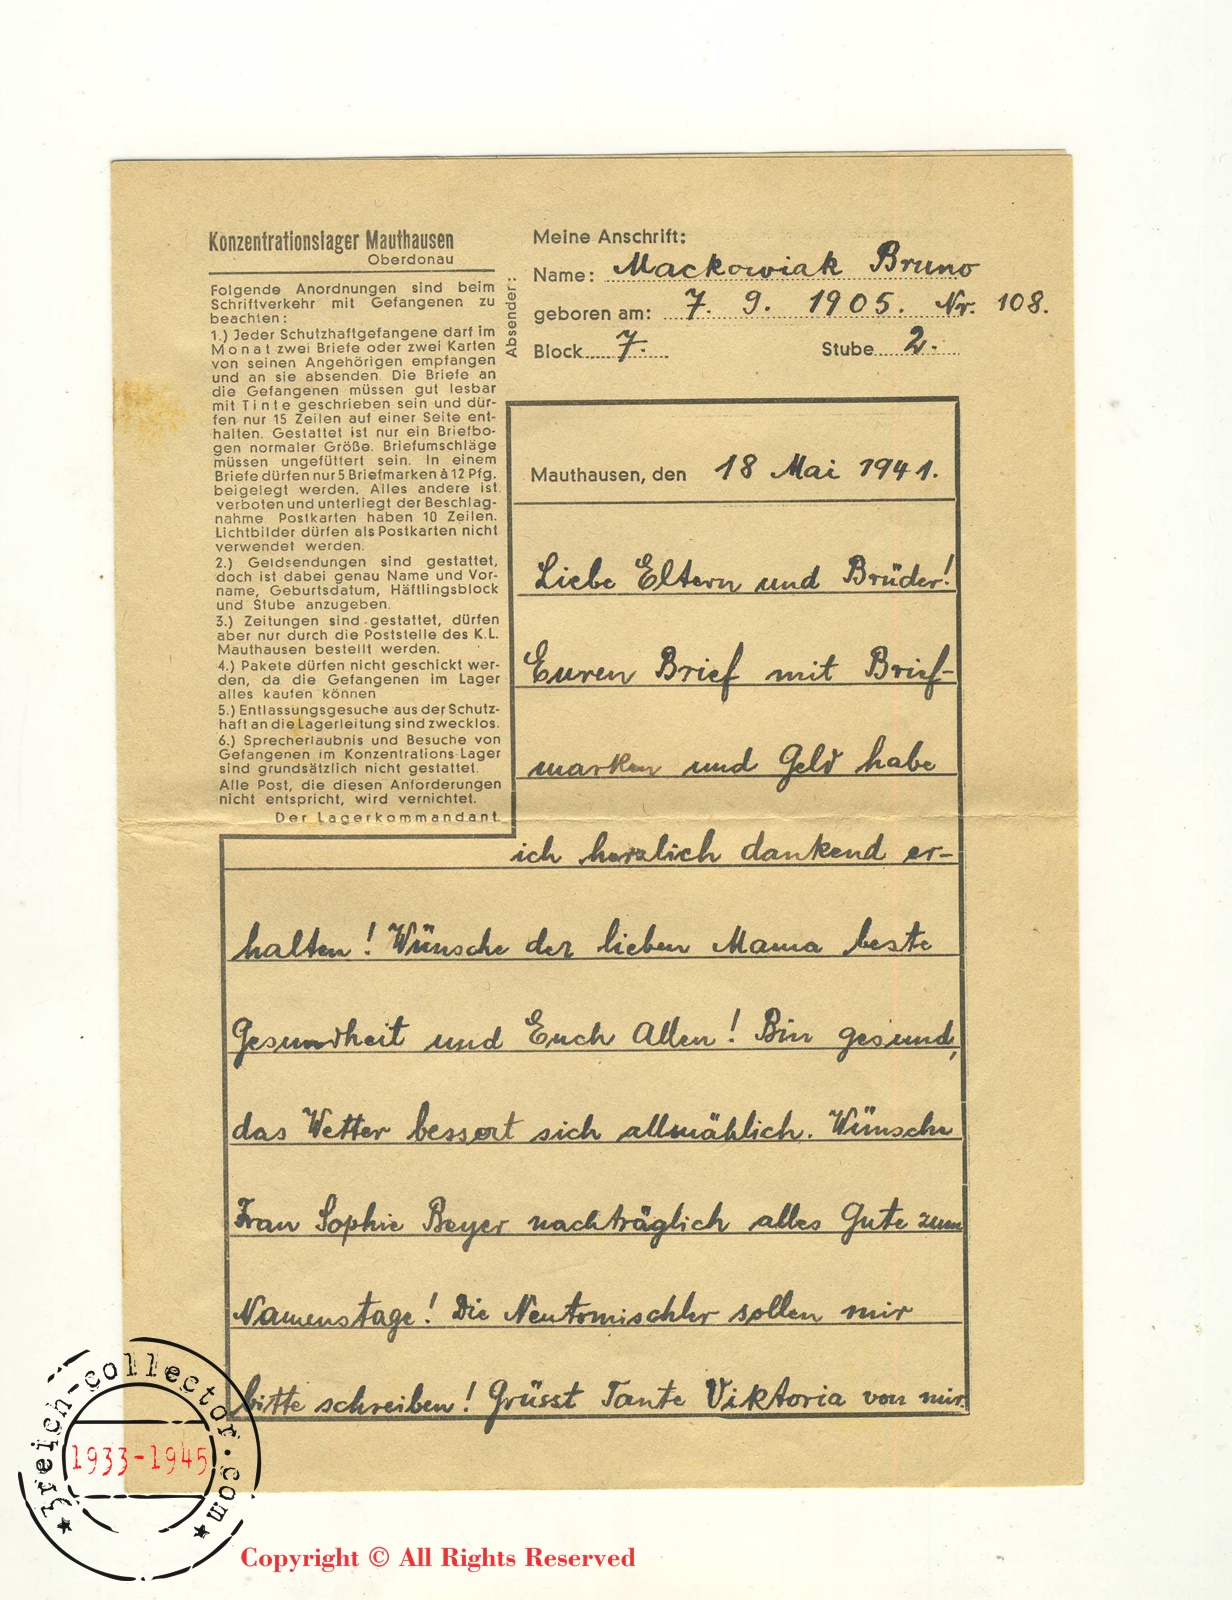 Konzentrationslager Mauthausen
Oberdonau
Folgende Anordnungen sind beim
Schriftverkehr mit Gefangenen zu
beachten:
1.) Jeder Schutzhaftgefangene darf im
Monat zwei Briefe oder zwei Karten
von seinen Angehörigen empfangen
und an sie absenden. Die Briefe an
die Gefangenen müssen gut lesbar
mit Tinte geschrieben sein und dür-
fen nur 15 Zeilen auf einer Seite ent-
halten. Gestattet ist nur ein Briefbo-
gen normaler Größe. Briefumschläge
müssen ungefüttert sein. In einem
Briefe dürfen nur 5 Briefmarken à 12 Pfg.
beigelegt werden. Alles andere ist
verboten und unterliegt der Beschlag-
nahme. Postkarten haben 10 Zeilen.
Lichtbilder dürfen als Postkarten nicht
verwendet werden.
2.) Geldsendungen sind gestattet,
doch ist dabei genau Name und Vor-
name, Geburtsdatum, Häftlingsblock
und Stube anzugeben.
3.) Zeitungen sind gestattet, dürfen
aber nur durch die Poststelle des K.L.
Mauthausen bestellt werden.
4.) Pakete dürfen nicht geschickt wer-
den, da die Gefangenen im Lager
alles kaufen können
5.) Entlassungsgesuche aus der Schutz-
haft an die Lagerleitung sind zwecklos.
6.) Sprecherlaubnis und Besuche von
Gefangenen im Konzentrations-Lager
sind grundsätzlich nicht gestattet.
Alle Post, die diesen Anforderungen
nicht entspricht, wird vernichtet.
Der Lagerkommandant.
Absender:
Meine Anschrift:
Name: Mackowiak Bruno
geboren am: 7. 9. 1905. Nr. 108.
Block 7. Stube 2.
Mauthausen, den 18 Mai 1941.
Liebe Eltern und Brüder!
Euren Brief mit Brief-
marken und Geld habe
ich herzlich dankend er-
halten! Wünsche der lieben Mama beste
Gesundheit und Euch Allen! Bin gesund,
das Wetter bessert sich allmählich. Wünsche
Frau Sophie Beyer nachträglich alles Gute zum
Namenstage! Die Neutomischler sollen mir
bitte schreiben! Grüsst Tante Viktoria von mir.
3reich-collector.com
1933-1945
Copyright © All Rights Reserved